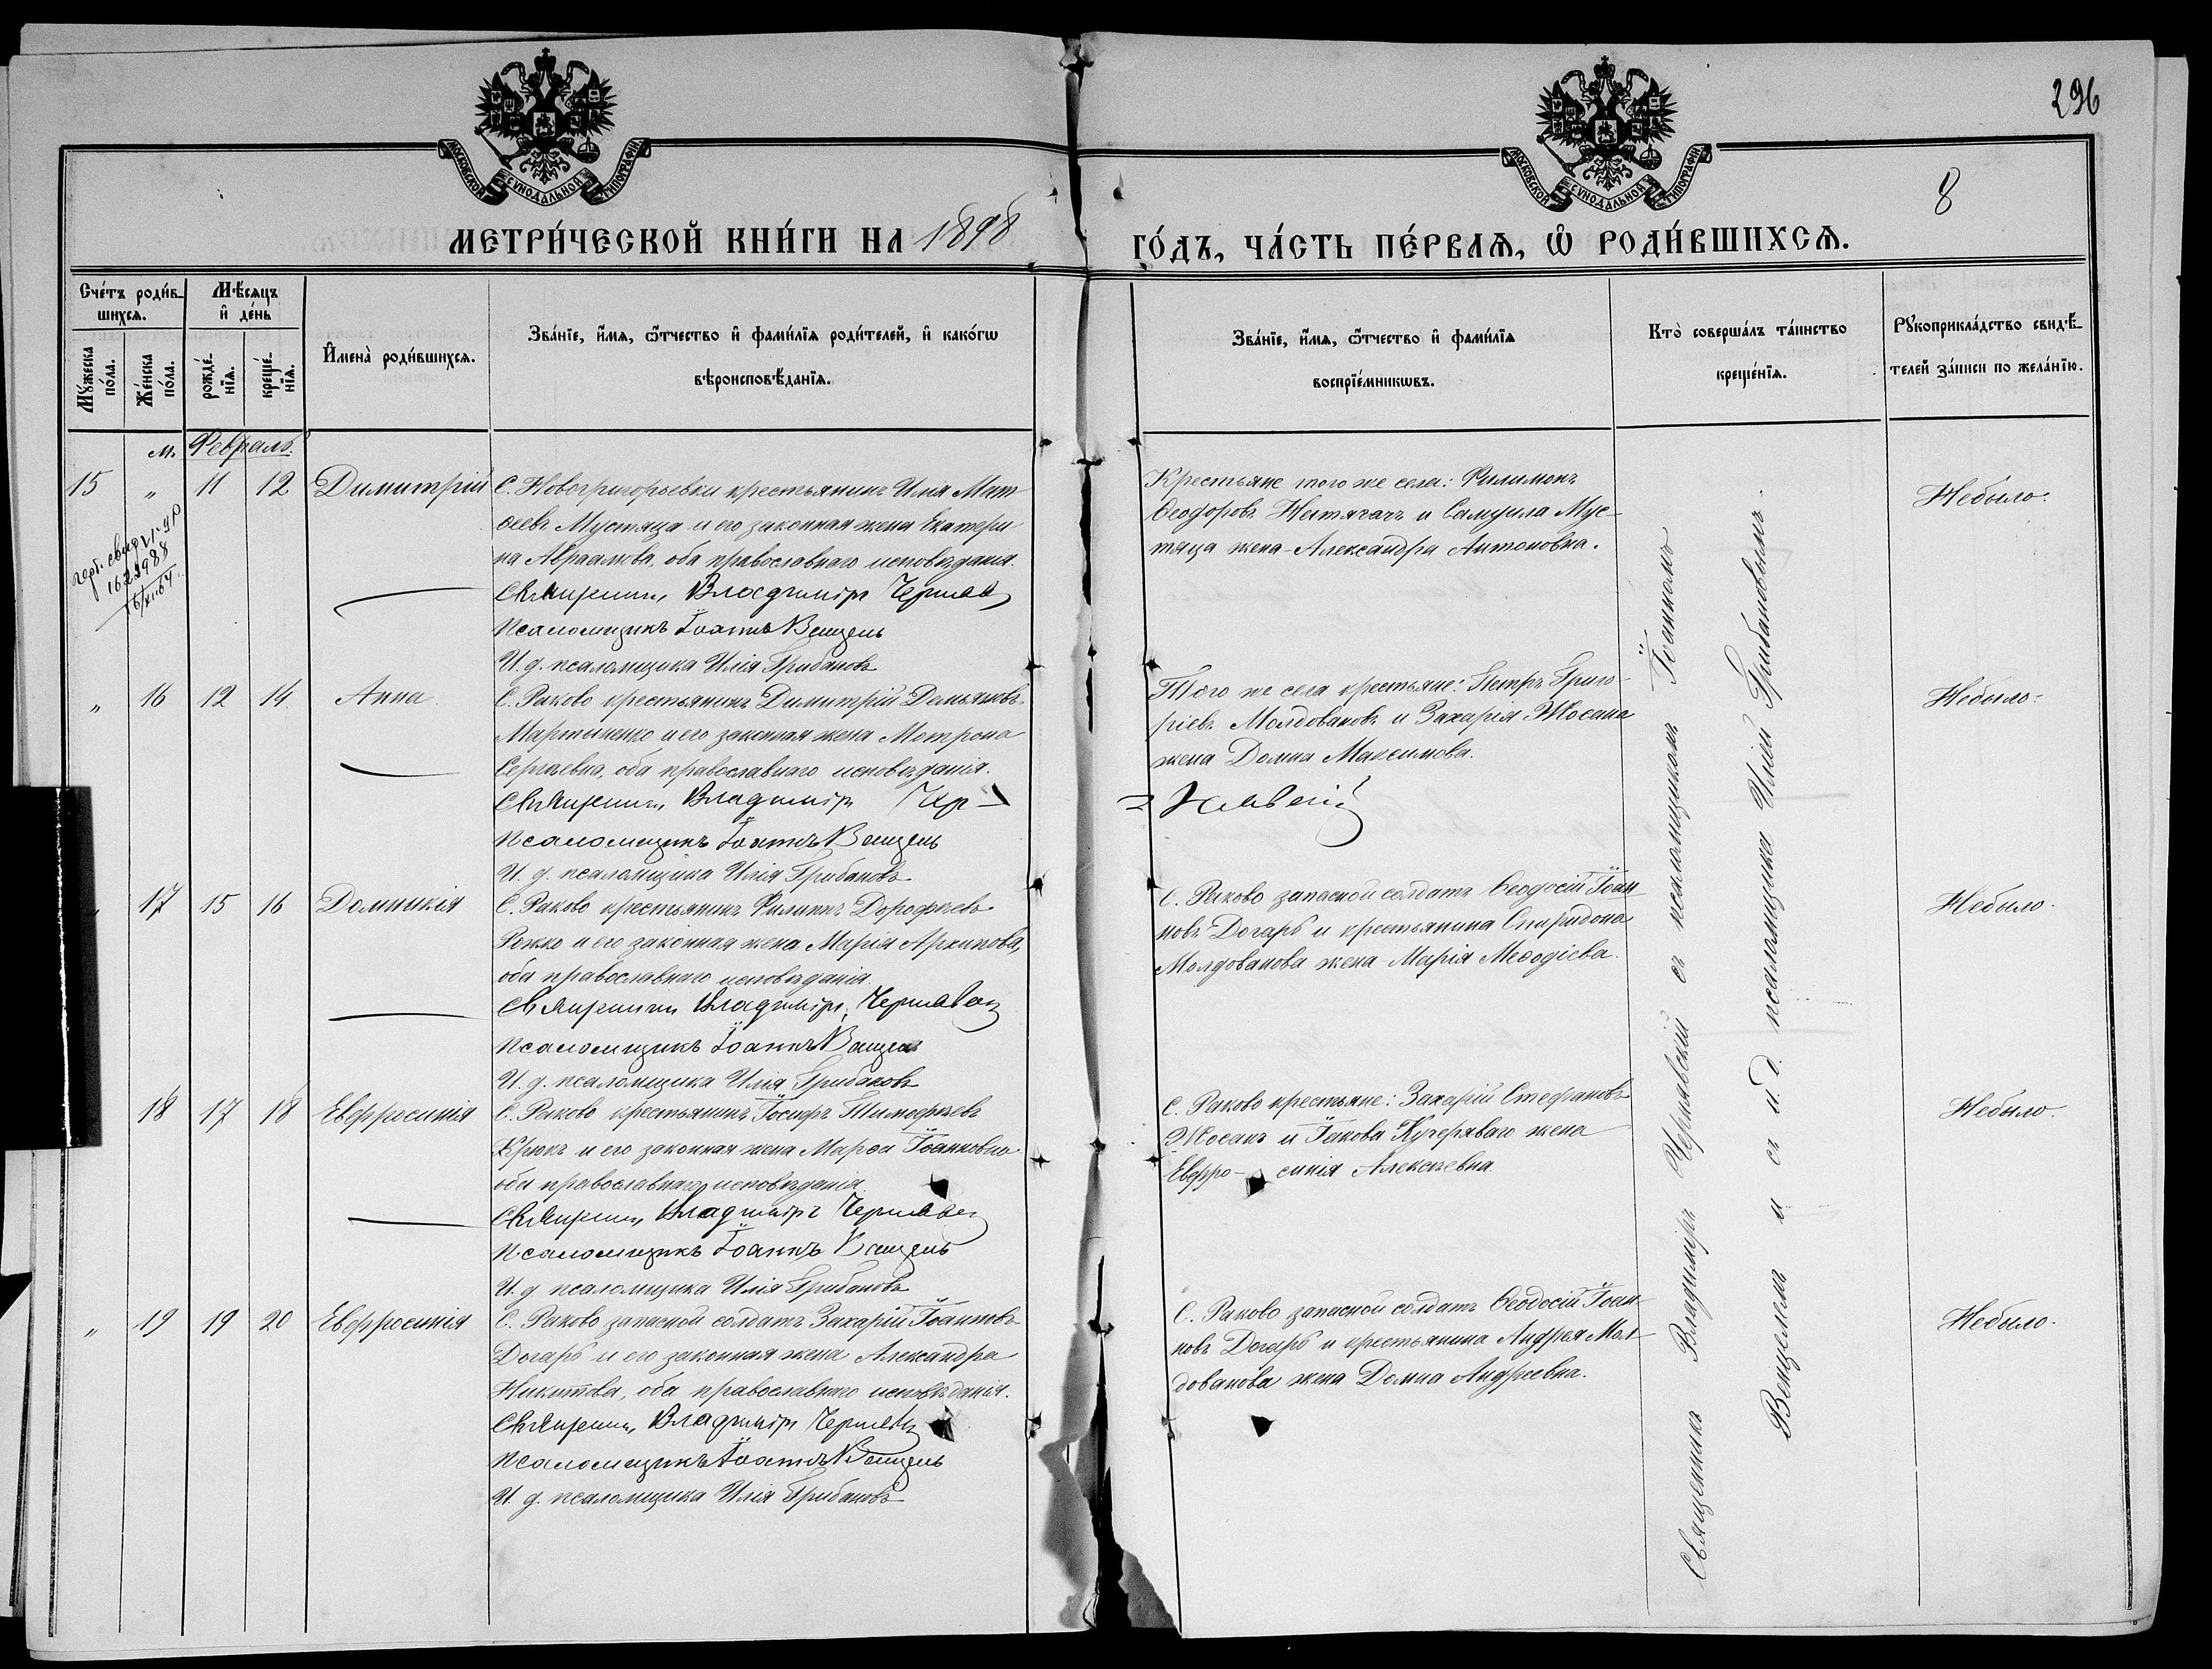 296
8
МОСКОВСКОЙ СѴНОДАЛЬНОЙ ТИПОГРАФІИ
МОСКОВСКОЙ СѴНОДАЛЬНОЙ ТИПОГРАФІИ
МЕТРИ́ЧЕСКОЙ КНИ́ГИ НА 1898
ГО́ДЪ, ЧА́СТЬ ПЕ́РВАѦ, Ѡ҆ РОДИ́ВШИХСѦ.
Сче́тъ роди́в-
шихсѧ.
Мѣ́сѧцъ
и҆ де́нь
Мꙋ́жеска
по́ла.
Же́нска
по́ла.
рожде́-
нїѧ.
креще́-
нїѧ.
И҆мена̀ роди́вшихсѧ.
Зва́нїе, и҆́мѧ, ѻ҆́тчество и҆ фами́лїѧ роди́телей, и҆ како́гѡ
вѣроисповѣ́данїѧ.
Зва́нїе, и҆́мѧ, ѻ҆́тчество и҆ фами́лїѧ
воспрїе́мникѡвъ.
Кто̀ соверша́лъ та́инство
креще́нїѧ.
Рꙋкоприкла́дство свидѣ́-
телей за́писи по жела́нїю.
м. Февраль.
15 " 11 12 Димитрій
С. Новогригорьевки крестьянинъ Илія Мат-
ѳеевъ Мустяца и его законная жена Екатери
на Авраамова, оба православнаго исповѣданія.
Священникъ Владиміръ Чернявс
Псаломщикъ Іоаннъ Венцель
И. д. псаломщика Илія Грибановъ
Крестьяне того же села: Филимонъ
Ѳеодоровъ Нетягачъ и Самуила Мус-
тяца жена Александра Антоновна.
Небыло.
" 16 12 14 Анна
С. Раково крестьянинъ Димитрій Демьяновъ
Мартыненко и его законная жена Мотрона
Сергѣевна, оба православнаго исповѣданія.
Священникъ Владиміръ Чер-
Псаломщикъ Іоаннъ Венцель
И. д. псаломщика Илія Грибановъ
Того же села крестьяне: Петръ Григо-
ріевъ Молдовановъ и Захарія Жосана
жена Домна Максимова.
нявскій
Небыло.
" 17 15 16 Домникія
С. Раково крестьянинъ Филиппъ Дорофеевъ
Рожко и его законная жена Марія Архипова,
оба православнаго исповѣданія.
Священникъ Владиміръ Чернявск
Псаломщикъ Іоаннъ Венцель
И. д. псаломщика Илія Грибановъ
С. Раково запасной солдатъ Ѳеодосій Іоан-
новъ Догарь и крестьянина Спиридона
Молдованова жена Марія Меѳодіева.
Небыло.
18 17 18 Евфросинія
С. Раково крестьянинъ Іосифъ Тимофеевъ
Крюкъ и его законная жена Марѳа Іоанновна
оба православнаго исповѣданія
Священникъ Владиміръ Чернявск
Псаломщикъ Іоаннъ Венцель
И. д. псаломщика Илія Грибановъ
С. Раково крестьяне: Захарій Стефановъ
Жосанъ и Іакова Кучеряваго жена
Евфро- синія Алексѣевна
Небыло.
" 19 19 20 Евфросинія
С. Раково запасной солдатъ Захарій Іоанновъ
Догарь и его законная жена Александра
Никитова, оба православнаго исповѣданія.
Священникъ Владиміръ Чернявск
Псаломщикъ Іоаннъ Венцель
И. д. псаломщика Илія Грибановъ
С. Раково запасной солдатъ Ѳеодосій Іоан-
новъ Догарь и крестьянина Андрея Мол-
дованова жена Домна Андреевна.
Небыло.
Священникъ Владиміръ Чернявскій съ псаломщикомъ Іоанномъ
Венцелемъ и съ и. д. псаломщика Иліей Грибановымъ.